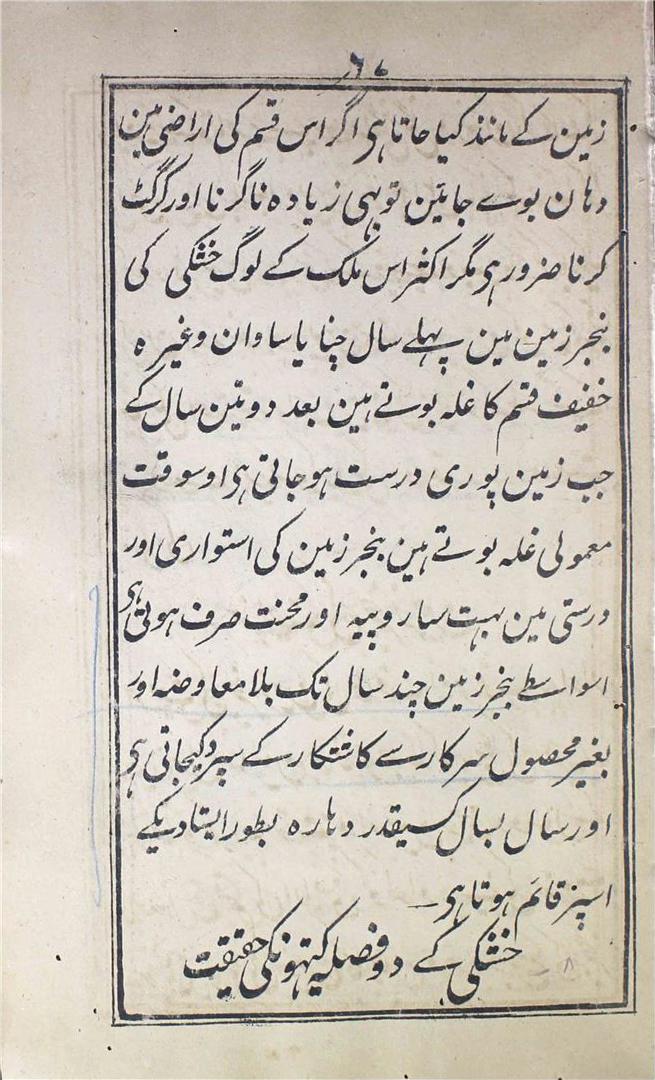 ۶۷
زمین کے مانند کیا جاتا ہی اگر اس قسم کی اراضی مین
دہان بوے جائین تو بہی زیادہ ناگرنا اور کرگٹ
کرنا ضرور ہی مگر اکثر اس ملک کے لوگ خشکی کی
بنجر زمین مین پہلے سال چنا یا ساوان وغیرہ
خفیف قسم کا غلہ بوتے ہین بعد دو تین سال کے
جب زمین پوری درست ہو جاتی ہی اوسوقت
معمولی غلہ بوتے ہین بنجر زمین کی استواری اور
درستی مین بہت سا روپیہ اور محنت صرف ہوتی ہی
اسواسطے بنجر زمین چند سال تک بلا معاوضہ اور
بغیر محصول سرکار سے کاشتکار کے سپرد کیجاتی ہی
اور سال بسال کسیقدر دہارہ بطور ایستادیکے
اسپر قائم ہوتا ہی
خشکی کے دو فصلہ کہتونکی حقیقت
۸